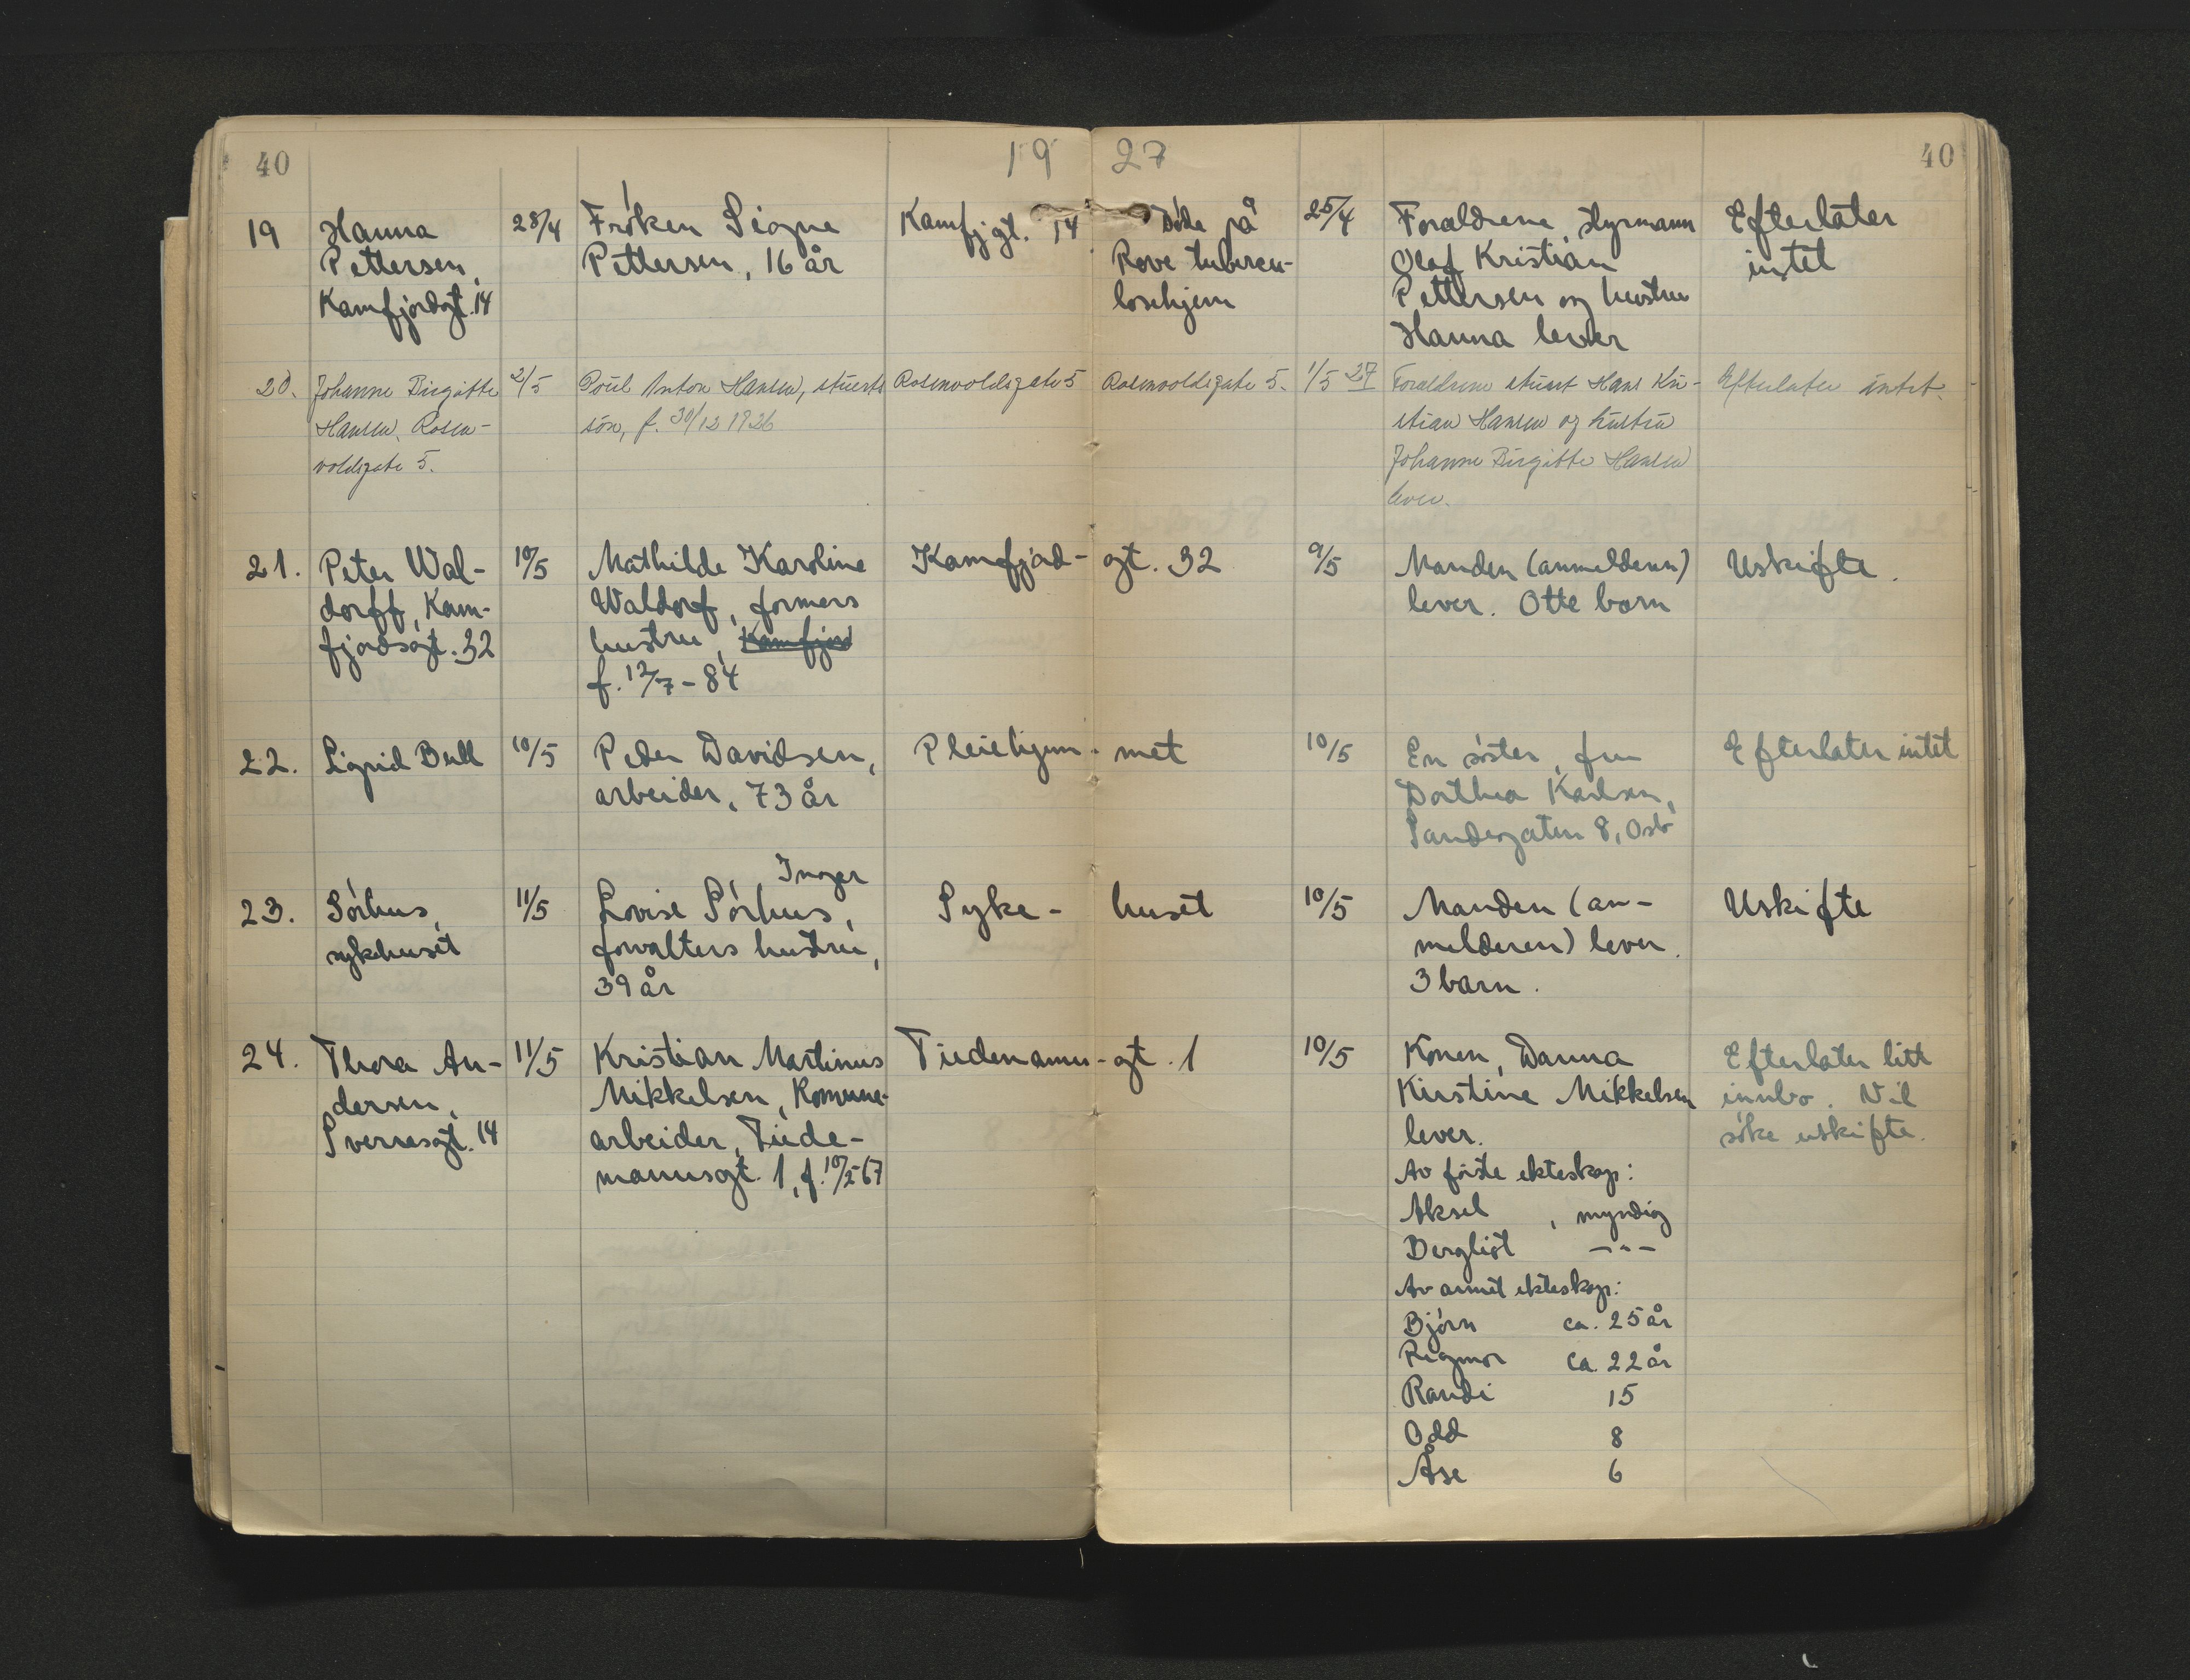 40
19 27
40
19
Hanna
Pettersen,
Kamfjordgt. 14
28/4
Frøken Signe
Pettersen, 16 år
Kamfjgt. 14
Døde på
Rove tubercu-
losehjem
25/4
Forældrene, Hyrmann
Olaf Kristian
Pettersen og hustru
Hanna lever
Efterlater
intet
20.
Johanne Birgitte
Hansen, Rosen-
voldsgate 5.
2/5
Poul Anton Hansen, stuerts
søn, f. 30/12 1926
Rosenvoldsgate 5
Rosenvoldsgate 5.
1/5 27
Forældrene stuert Hans Kri-
stian Hansen og hustru
Johanne Birgitte Hansen
lever.
Efterlater intet.
21.
Peter Wal-
dorff, Kam-
fjordsgt. 32
10/5
Mathilde Karoline
Waldorf, formers
hustru, Kamfjord
f. 12/7 - 84
Kamfjord-
gt. 32
9/5
Manden (anmelderen)
lever. Otte barn
Uskifte.
22.
Sigrid Bull
10/5
Peder Davidsen,
arbeider, 73 år
Pleiehjem-
met
10/5
En søster, fru
Dorthea Karlsen,
Sandegaten 8, Osb
Efterlater intet
23.
Sørhus,
sykehuset
11/5
Inger
Lovise Sørhus,
forvalters hustru,
39 år
Syke-
huset
10/5
Manden (an-
melderen) lever.
3 barn.
Uskifte
24.
Thora An-
dersen,
Sverresgt. 14
11/5
Kristian Martinus
Mikkelsen, Komune-
arbeider, Tiide-
mannsgt. 1, f. 10/2 67
Tiidemanns-
gt. 1
10/5
Konen, Danna
Kirstine Mikkelsen
lever.
Av første ekteskap:
Aksel , myndig
Bergliot - " -
Av annet ekteskap:
Bjørn ca. 25 år
Rigmor ca. 22 år
Randi 15
Odd 8
Åse 6
Efterlater litt
innbo. Vil
søke uskifte.